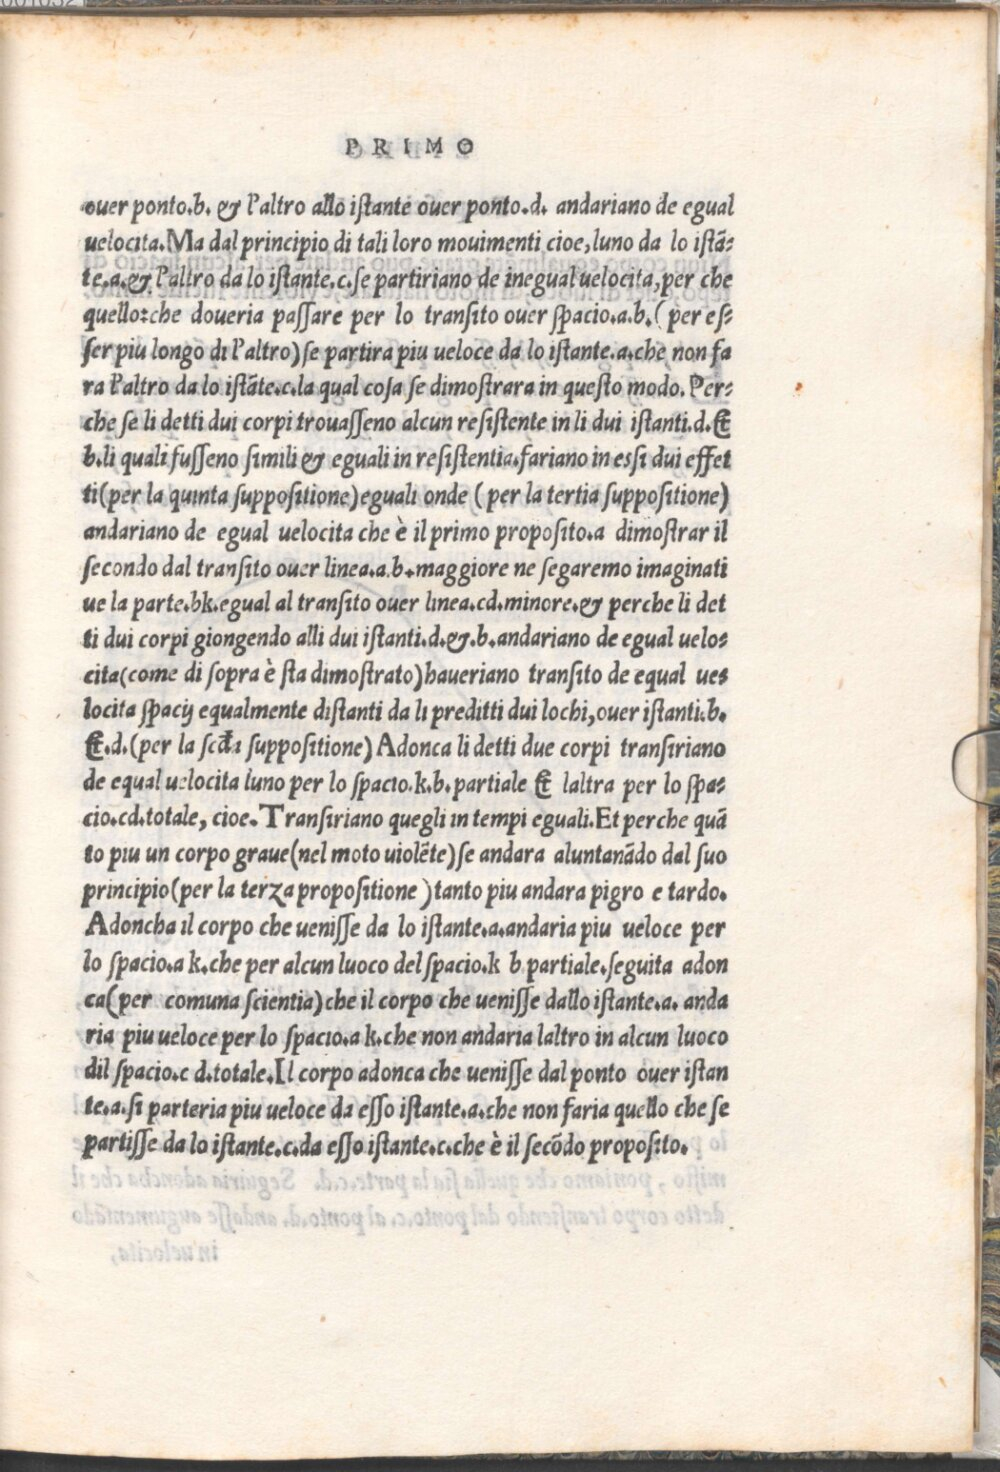 PRIMO
ouer ponto.b. & l'altro allo istante ouer ponto.d. andariano de egual
uelocita.Ma dal principio di tali loro mouimenti cioe,luno da lo istã=
te.a.& l'altro da lo istante.c.se partiriano de inegual uelocita,per che
quello:che doueria passare per lo transito ouer spacio.a.b.(per es=
ser piu longo di l'altro)se partira piu ueloce da lo istante.a.che non fa
ra l'altro da lo istãte.c.la qual cosa se dimostrara in questo modo.Per=
che se li detti dui corpi trouasseno alcun resistente in li dui istanti.d.&
b.li quali fusseno simili & eguali in resistentia.fariano in essi dui effet
ti(per la quinta suppositione)eguali onde (per la tertia suppositione)
andariano de egual uelocita che è il primo proposito.a dimostrar il
secondo dal transito ouer linea.a.b.maggiore ne segaremo imaginati
ue la parte.bk.egual al transito ouer linea.cd.minore.& perche li det
ti dui corpi giongendo alli dui istanti.d.&.b.andariano de egual uelo=
cita(come di sopra è sta dimostrato)haueriano transito de equal ue=
locita spacij equalmente distanti da li preditti dui lochi,ouer istanti.b.
&.d.(per la scďa suppositione)Adonca li detti due corpi transiriano
de equal uelocita luno per lo spacio.k.b.partiale & laltra per lo spa=
cio.cd.totale, cioe.Transiriano quegli in tempi eguali.Et perche quã
to piu un corpo graue(nel moto violẽte)se andara aluntanãdo dal suo
principio(per la terza propositione)tanto piu andara pigro e tardo.
Adoncha il corpo che uenisse da lo istante.a.andaria piu ueloce per
lo spacio.a k.che per alcun luoco del spacio.k b.partiale.seguita adon
ca(per comuna scientia)che il corpo che uenisse dallo istante.a. anda
ria piu ueloce per lo spacio.a k.che non andaria laltro in alcun luoco
dil spacio.c d.totale.Il corpo adonca che uenisse dal ponto ouer istan
te.a.si parteria piu ueloce da esso istante.a.che non faria quello che se
partisse da lo istante.c.da esso istante.c.che è il secõdo proposito.